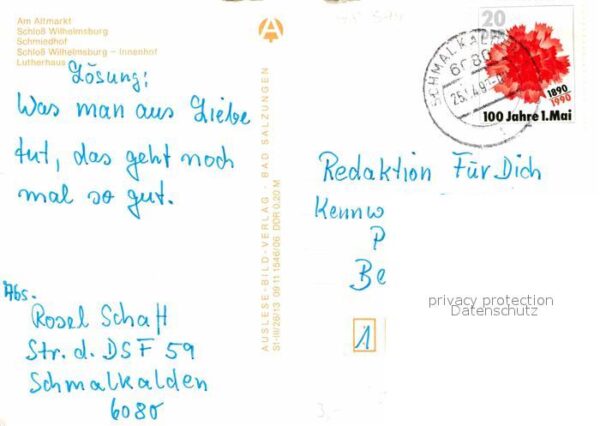 Am Altmarkt
Schloß Wilhelmsburg
Schmiedhof
Schloß Wilhelmsburg – Innenhof
Lutherhaus
Lösung:
Was man aus Liebe
tut, das geht noch
mal so gut.
Abs.
Rosel Schaft
Str. d. DSF 59
Schmalkalden
6080
AUSLESE-BILD-VERLAG - BAD SALZUNGEN
St-III/26/13 09 11 1546/06 DDR 0,20 M
20
SCHMALKALDEN
6080
1890
1990
100 Jahre 1.Mai
Redaktion Für Dich
Kennw
P
Be
1
privacy protection
Datenschutz
3,-